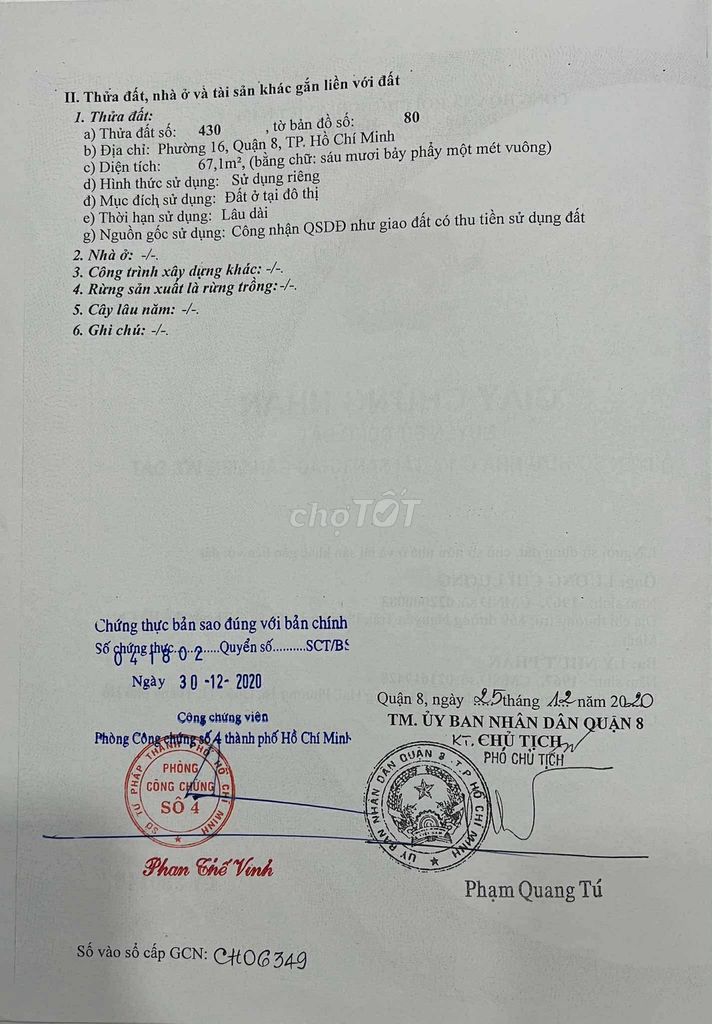 II. Thửa đất, nhà ở và tài sản khác gắn liền với đất
1. Thửa đất:
a) Thửa đất số: 430 , tờ bản đồ số: 80
b) Địa chỉ: Phường 16, Quận 8, TP. Hồ Chí Minh
c) Diện tích: 67,1m², (bằng chữ: sáu mươi bảy phẩy một mét vuông)
d) Hình thức sử dụng: Sử dụng riêng
đ) Mục đích sử dụng: Đất ở tại đô thị
e) Thời hạn sử dụng: Lâu dài
g) Nguồn gốc sử dụng: Công nhận QSDĐ như giao đất có thu tiền sử dụng đất
2. Nhà ở: -/-.
3. Công trình xây dựng khác: -/-.
4. Rừng sản xuất là rừng trồng: -/-.
5. Cây lâu năm: -/-.
6. Ghi chú: -/-.
chợTỐT
Chứng thực bản sao đúng với bản chính
Số chứng thực..........Quyển số..........SCT/BS
041802
Ngày 30-12-2020
Công chứng viên
Phòng Công chứng số 4 thành phố Hồ Chí Minh
SỞ TƯ PHÁP THÀNH PHỐ HỒ CHÍ MINH
PHÒNG
CÔNG CHỨNG
SỐ 4
Phan Thế Vinh
Quận 8, ngày 25 tháng 12 năm 2020
TM. ỦY BAN NHÂN DÂN QUẬN 8
KT. CHỦ TỊCH
PHÓ CHỦ TỊCH
ỦY BAN NHÂN DÂN QUẬN 8 T.P HỒ CHÍ MINH
Phạm Quang Tú
Số vào sổ cấp GCN: CH06349